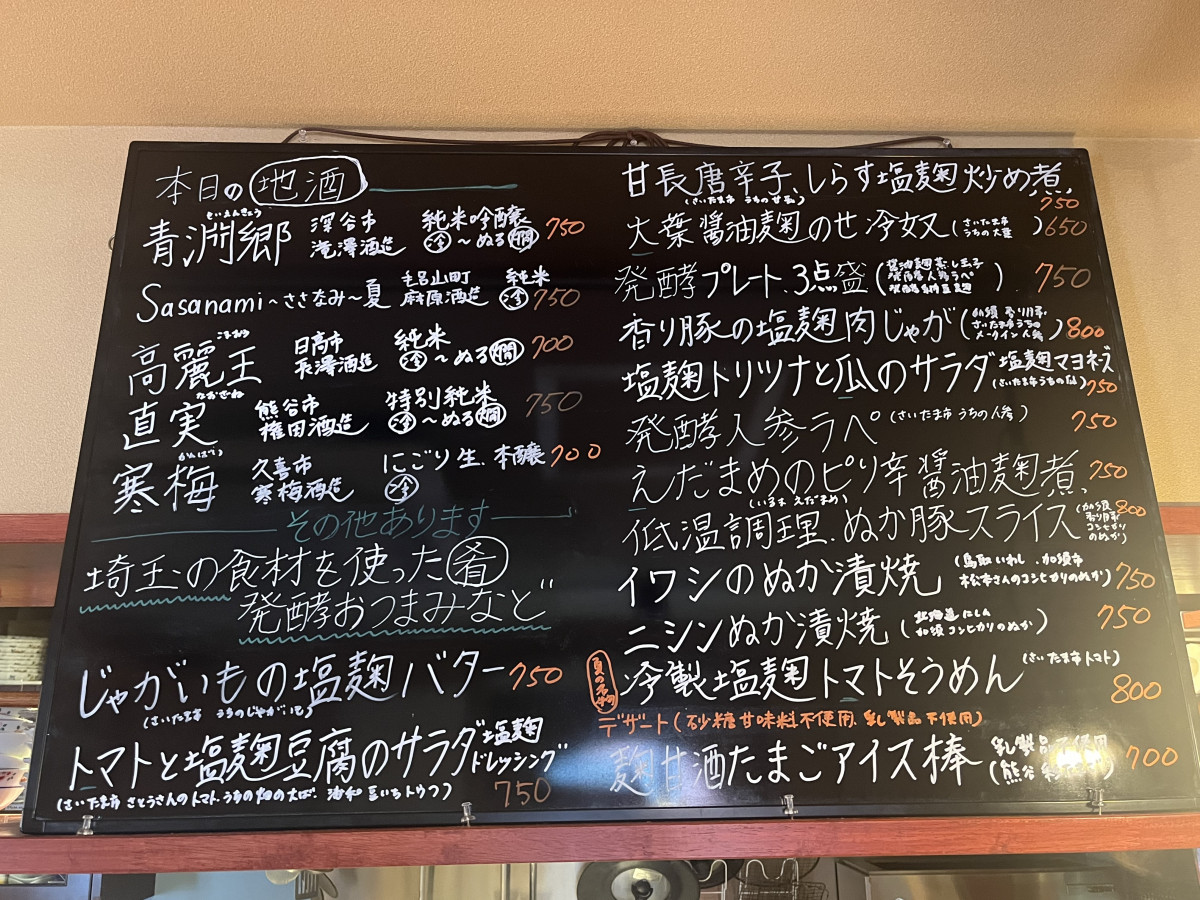 本日の地酒
せいえんきょう
青淵郷 深谷市 滝澤酒造 純米吟醸 冷〜ぬる燗 750
Sasanami〜ささなみ〜夏 毛呂山町 麻原酒造 純米 冷 750
高麗王 日高市 長澤酒造 純米 冷〜ぬる燗 700
なおざね
直実 熊谷市 権田酒造 特別純米 冷〜ぬる燗 750
かんばい
寒梅 久喜市 寒梅酒造 にごり生.本醸 冷 700
その他あります
埼玉の食材を使った肴
発酵おつまみなど
じゃがいもの塩麹バター 750
(さいたま市 うちのじゃがいも)
トマトと塩麹豆腐のサラダ 塩麹ドレッシング
(さいたま市 さとうさんのトマト.うちの畑の大ば. 浦和 トウフ) 750
甘長唐辛子、しらす塩麹炒め煮
(さいたま市 うちの甘長) 750
大葉醤油麹のせ冷奴(さいたま市 うちの大葉) 650
発酵プレート.3点盛(醤油麹蒸し玉子 発酵人参ラペ) 750
香り豚の塩麹肉じゃが(加須 香り豚. さいたま市うちの メークイン 人参) 800
塩麹トリツナと瓜のサラダ 塩麹マヨネーズ
(さいたま市うちの瓜) 750
発酵人参ラペ(さいたま市 うちの人参) 750
えだまめのピリ辛醤油麹煮 750
(いるま えだまめ)
低温調理.ぬか豚スライス(加須 香り豚 コシヒカリのぬか) 800
イワシのぬか漬焼(鳥取いわし.加須市 松本さんのコシヒカリのぬか) 750
ニシンぬか漬焼(北海道にしん 加須コシヒカリのぬか) 750
夏の名物
冷製塩麹トマトそうめん(さいたま市トマト) 800
デザート(砂糖甘味料不使用.乳製品不使用)
麹甘酒たまごアイス棒(乳製品不使用 熊谷) 700